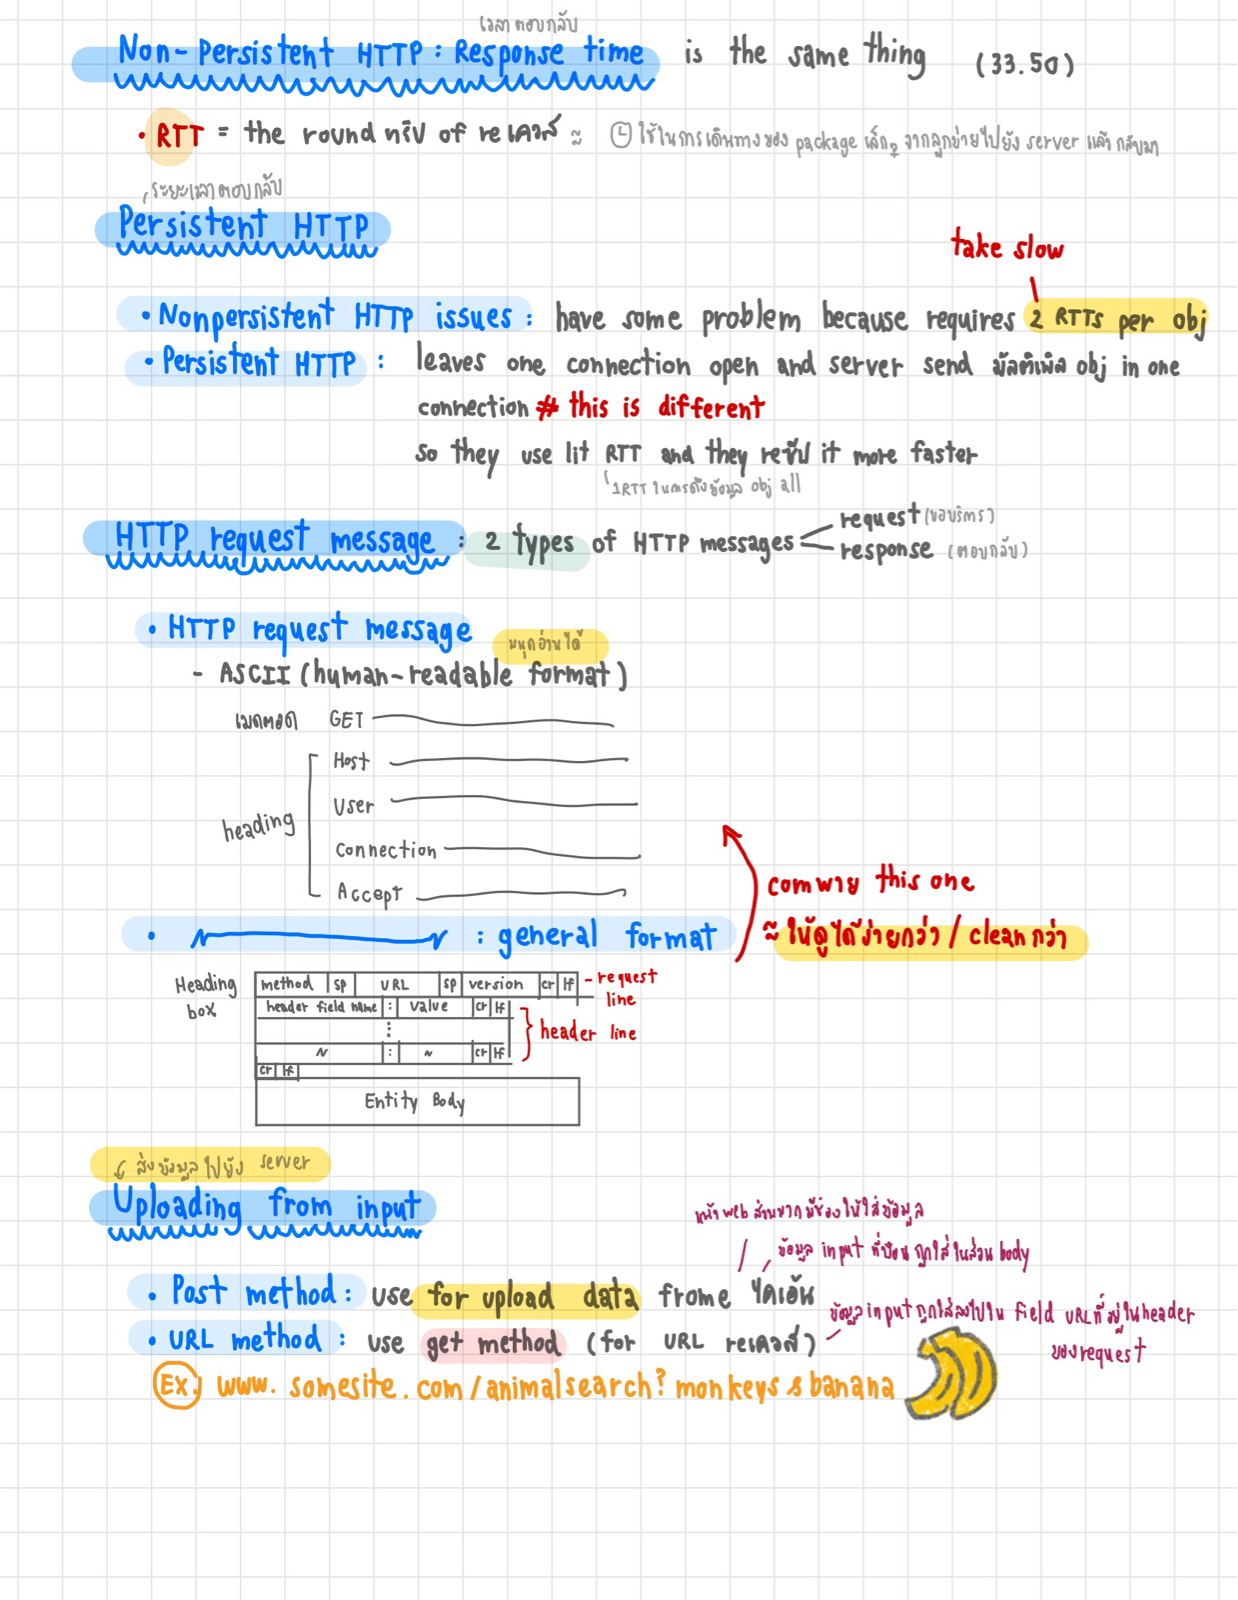 เวลาตอบกลับ
Non-Persistent HTTP : Response time is the same thing (33.50)
• RTT = the round ทริป of reเควส ≈ ใช้ในการเดินทางของ package เล็กๆ จากลูกข่ายไปยัง server แล้วกลับมา
ระยะเวลาตอบกลับ
Persistent HTTP
take slow
• Nonpersistent HTTP issues : have some problem because requires 2 RTTs per obj
• Persistent HTTP : leaves one connection open and server send มัลติเพิล obj in one
connection # this is different
so they use lit RTT and they reซีป it more faster
1RTT ในการดึงข้อมูล obj all
HTTP request message : 2 types of HTTP messages
request (ขอบริการ)
response (ตอบกลับ)
• HTTP request message
มนุกอ่านได้
- ASCII (human-readable format)
เมดตอด GET
Host
User
heading
Connection
Accept
comพาย this one
• ~ : general format
≈ ให้ดูได้ง่ายกว่า / clean กว่า
Heading box
method sp URL sp version cr lf - request line
header field name : value cr lf
⋮
header line
~ : ~ cr lf
cr lf
Entity Body
ส่งข้อมูลไปยัง server
Uploading from input
หน้า web ส่วนมากมีช่องให้ใส่ข้อมูล
ข้อมูล input ที่ป้อน ถูกใส่ในส่วน body
• Post method : use for upload data frome ไคเอ้น
ข้อมูล input ถูกใส่ลงไปใน field URL ที่อยู่ใน header
ของ request
• URL method : use get method (for URL reเควส)
EX. www.somesite.com/animalsearch?monkeys&banana